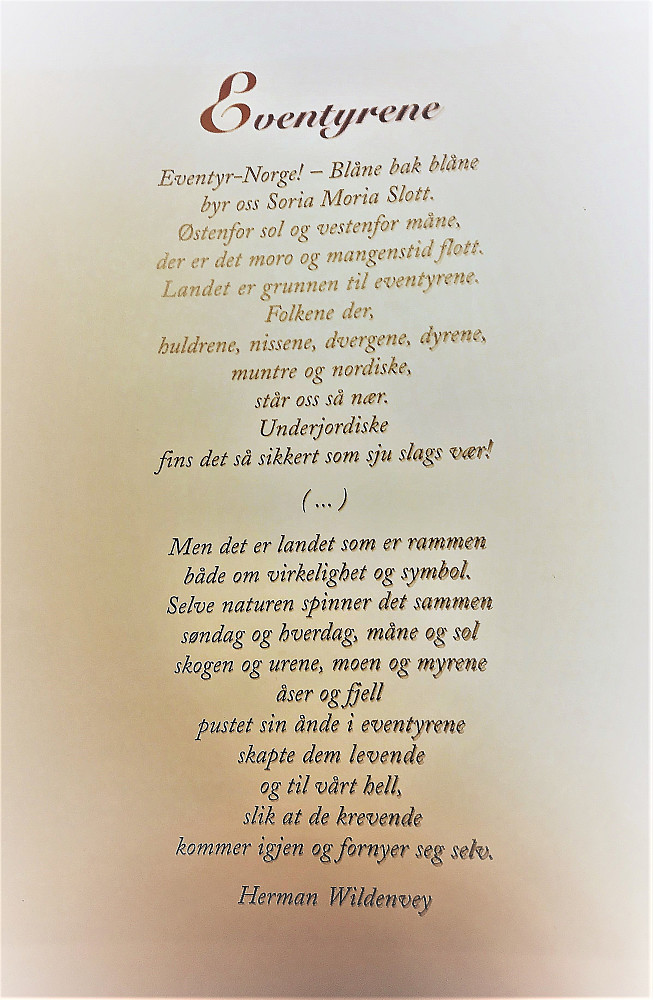 Eventyrene
Eventyr-Norge! – Blåne bak blåne
byr oss Soria Moria Slott.
Østenfor sol og vestenfor måne,
der er det moro og mangenstid flott.
Landet er grunnen til eventyrene.
Folkene der,
huldrene, nissene, dvergene, dyrene,
muntre og nordiske,
står oss så nær.
Underjordiske
fins det så sikkert som sju slags vær!
(...)
Men det er landet som er rammen
både om virkelighet og symbol.
Selve naturen spinner det sammen
søndag og hverdag, måne og sol
skogen og urene, moen og myrene
åser og fjell
pustet sin ånde i eventyrene
skapte dem levende
og til vårt hell,
slik at de krevende
kommer igjen og fornyer seg selv.
Herman Wildenvey